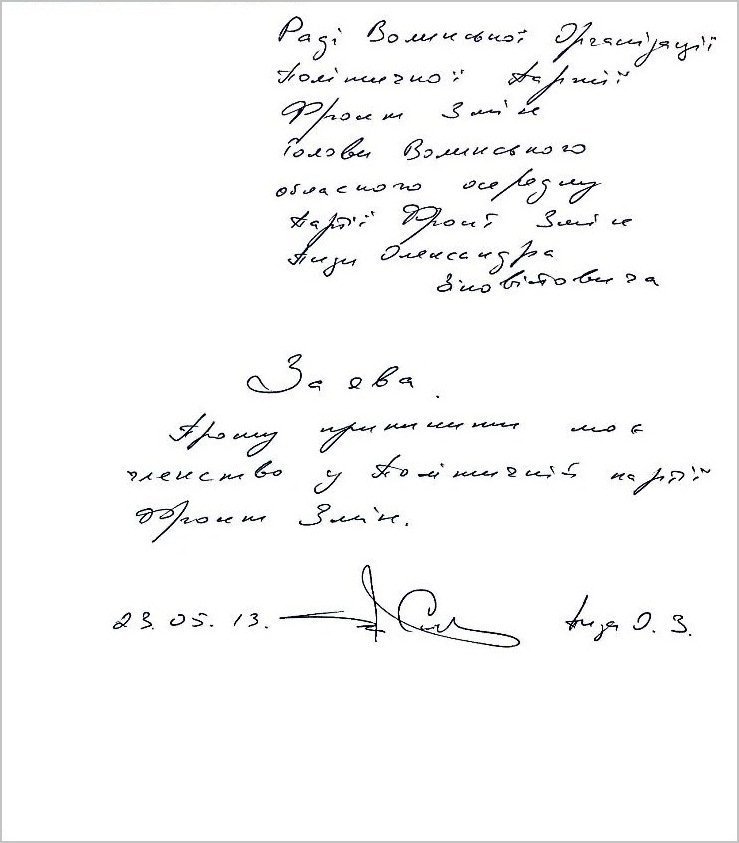 Раді Волинської Організації
Політичної Партії
Фронт Змін
Голови Волинського
обласного осередку
Партії Фронт Змін
Пиза Олександра
Зіновійовича
Заява.
Прошу припинити моє
членство у Політичній партії
Фронт Змін.
23.05.13. Пиза О. З.